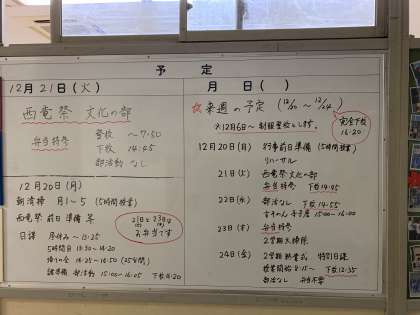 予定
12月21日(火)
西竜祭 文化の部
弁当持参
登校 〜7:50
下校 14:45
部活動 なし
12月20日(月)
朝清掃 月1〜5 (5時間授業)
西竜祭 前日準備
日課
〜13:25
5時間目 13:30〜14:20
諸準備 部活動 15:00〜16:05 下校16:20
21日と23日は
(火) (木)
お弁当です
月 日( )
☆来週の予定 (12/20 〜 12/24)
完全下校
16:20
※12月6日〜 制限登校とします。
12月20日(月) 行事前日準備 (5時間授業)
リハーサル
21日(火) 西竜祭 文化の部
弁当持参 下校14:45
22日(水) 部活なし 下校14:55
15:00〜16:00
23日(木) 弁当持参
2学期大掃除
24日(金) 2学期 終業式 特別日課
下校12:35
部活なし 弁当不要